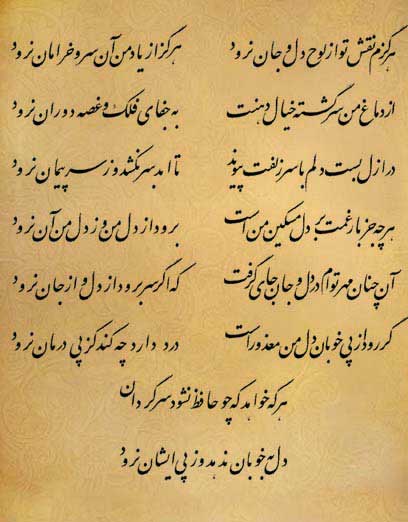 هرگزم نقش تو از لوح دل و جان نرود هرگز از یاد من آن سرو خرامان نرود
از دماغ من سرگشته خیال دهنت به جفای فلک و غصه دوران نرود
در ازل بست دلم با سر زلفت پیوند تا ابد سر نکشد وز سر پیمان نرود
هر چه جز بار غمت بر دل مسکین من است برود از دل من وز دل من آن نرود
آن چنان مهر توام در دل و جان جای گرفت که اگر سر برود از دل و از جان نرود
گر رود از پی خوبان دل من معذور است درد دارد چه کند کز پی درمان نرود
هر که خواهد که چو حافظ نشود سرگردان
دل به خوبان ندهد وز پی ایشان نرود